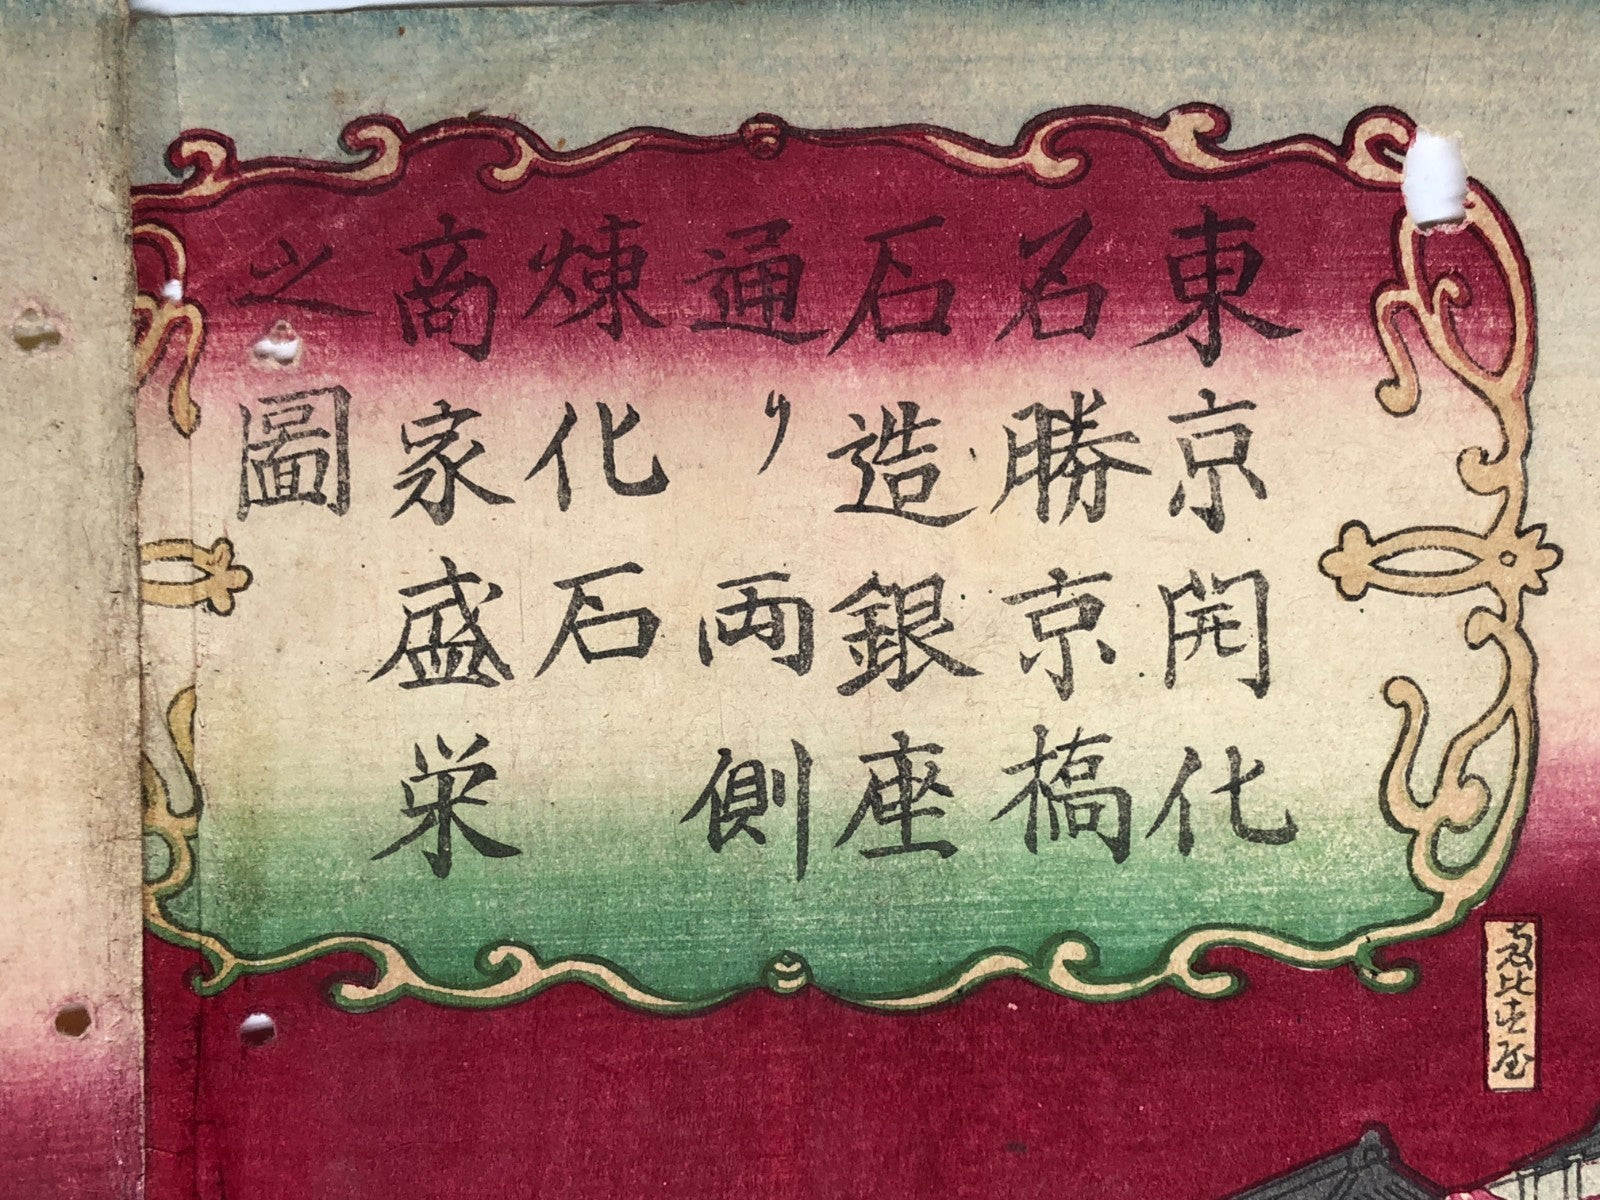 東京開化
名勝京橋
石造銀座
通り両側
煉化石
商家盛栄
之圖
恵比寿屋